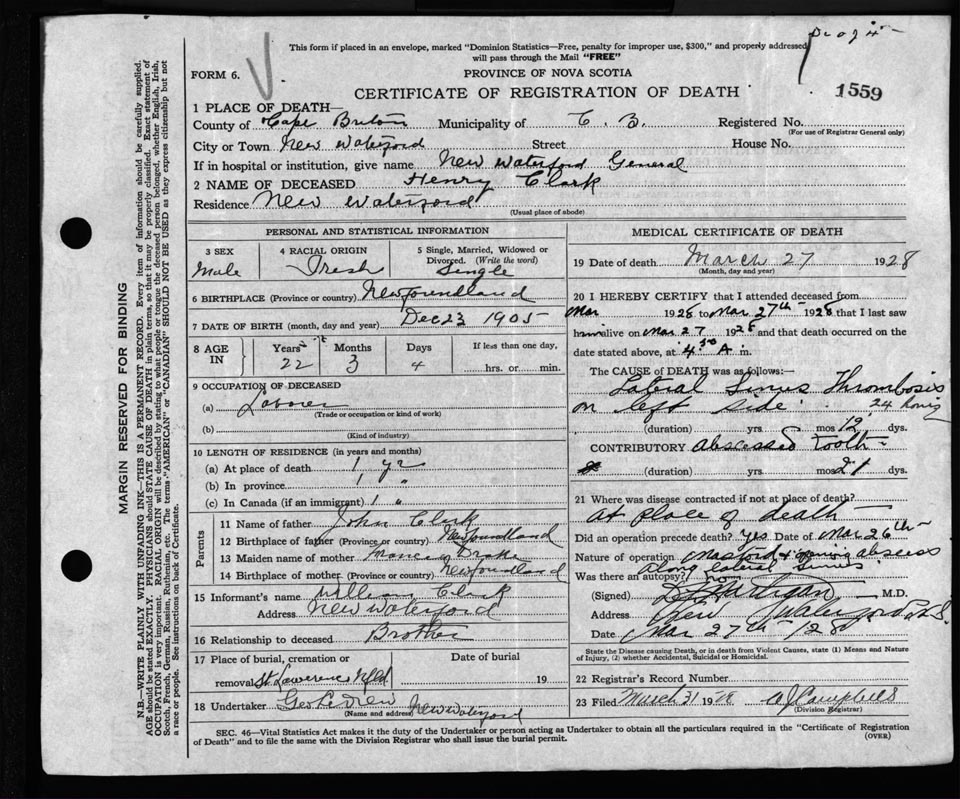 This form if placed in an envelope, marked "Dominion Statistics—Free, penalty for improper use, $300," and properly addressed
will pass through the Mail "FREE"
FORM 6.
PROVINCE OF NOVA SCOTIA
CERTIFICATE OF REGISTRATION OF DEATH
1559
1 PLACE OF DEATH—
County of Cape Breton Municipality of C. B. Registered No.
(For use of Registrar General only)
City or Town New Waterford Street House No.
If in hospital or institution, give name New Waterford General
2 NAME OF DECEASED Henry Clark
Residence New Waterford
(Usual place of abode)
MARGIN RESERVED FOR BINDING
N.B.—WRITE PLAINLY WITH UNFADING INK—THIS IS A PERMANENT RECORD. Every item of information should be carefully supplied.
AGE should be stated EXACTLY. PHYSICIANS should STATE CAUSE OF DEATH in plain terms, so that it may be properly classified. Exact statement of
OCCUPATION is very important. RACIAL ORIGIN will be described by stating to what people or tongue the deceased person belonged, whether English, Irish,
Scotch, French, German, Russian, Ruthenian, etc. The terms "AMERICAN" or "CANADIAN" SHOULD NOT BE USED as they express citizenship but not
a race or people. See instructions on back of Certificate.
PERSONAL AND STATISTICAL INFORMATION
3 SEX
Male
4 RACIAL ORIGIN
Iresh
5 Single, Married, Widowed or
Divorced. (Write the word)
Single
6 BIRTHPLACE (Province or country) Newfoundland
7 DATE OF BIRTH (month, day and year) Dec 23 1905
8 AGE IN
Years Months Days
22 3 4
If less than one day,
hrs. or min.
9 OCCUPATION OF DECEASED
(a) Laborer
(Trade or occupation or kind of work)
(b)
(Kind of industry)
10 LENGTH OF RESIDENCE (in years and months)
(a) At place of death 1 yr
(b) In province 1 "
(c) In Canada (if an immigrant) 1 "
Parents
11 Name of father John Clark
12 Birthplace of father (Province or country) Newfoundland
13 Maiden name of mother Francis Drake
14 Birthplace of mother (Province or country) Newfoundland
15 Informant's name William Clark
Address New Waterford
16 Relationship to deceased Brother
17 Place of burial, cremation or
removal St Lawrence Nfld
Date of burial
19
18 Undertaker New Waterford
(Name and address)
MEDICAL CERTIFICATE OF DEATH
19 Date of death March 27 1928
(Month, day and year)
20 I HEREBY CERTIFY that I attended deceased from
Mar 1928 to Mar 27th 1928 that I last saw
him alive on Mar 27 1928 and that death occurred on the
date stated above, at 4 30 A m.
The CAUSE of DEATH was as follows:—
Lateral Sinus Thrombosis
on left side
24
(duration) yrs mos 12 dys.
CONTRIBUTORY Abscessed tooth
(duration) yrs mos 21 dys.
21 Where was disease contracted if not at place of death?
At place of death
Did an operation precede death? Yes Date of Mar 26th
Nature of operation Mastoid abscess
Along lateral sinus
Was there an autopsy? no
(Signed) M.D.
Address New Waterford N.S.
Date Mar 27th 1928
State the Disease causing Death, or in death from Violent Causes, state (1) Means and
Nature of Injury, (2) whether Accidental, Suicidal or Homicidal.
22 Registrar's Record Number
23 Filed March 31 1928 A J Campbell
(Division Registrar)
SEC. 46—Vital Statistics Act makes it the duty of the Undertaker or person acting as Undertaker to obtain all the particulars required in the "Certificate of Registration
of Death" and to file the same with the Division Registrar who shall issue the burial permit.
(OVER)